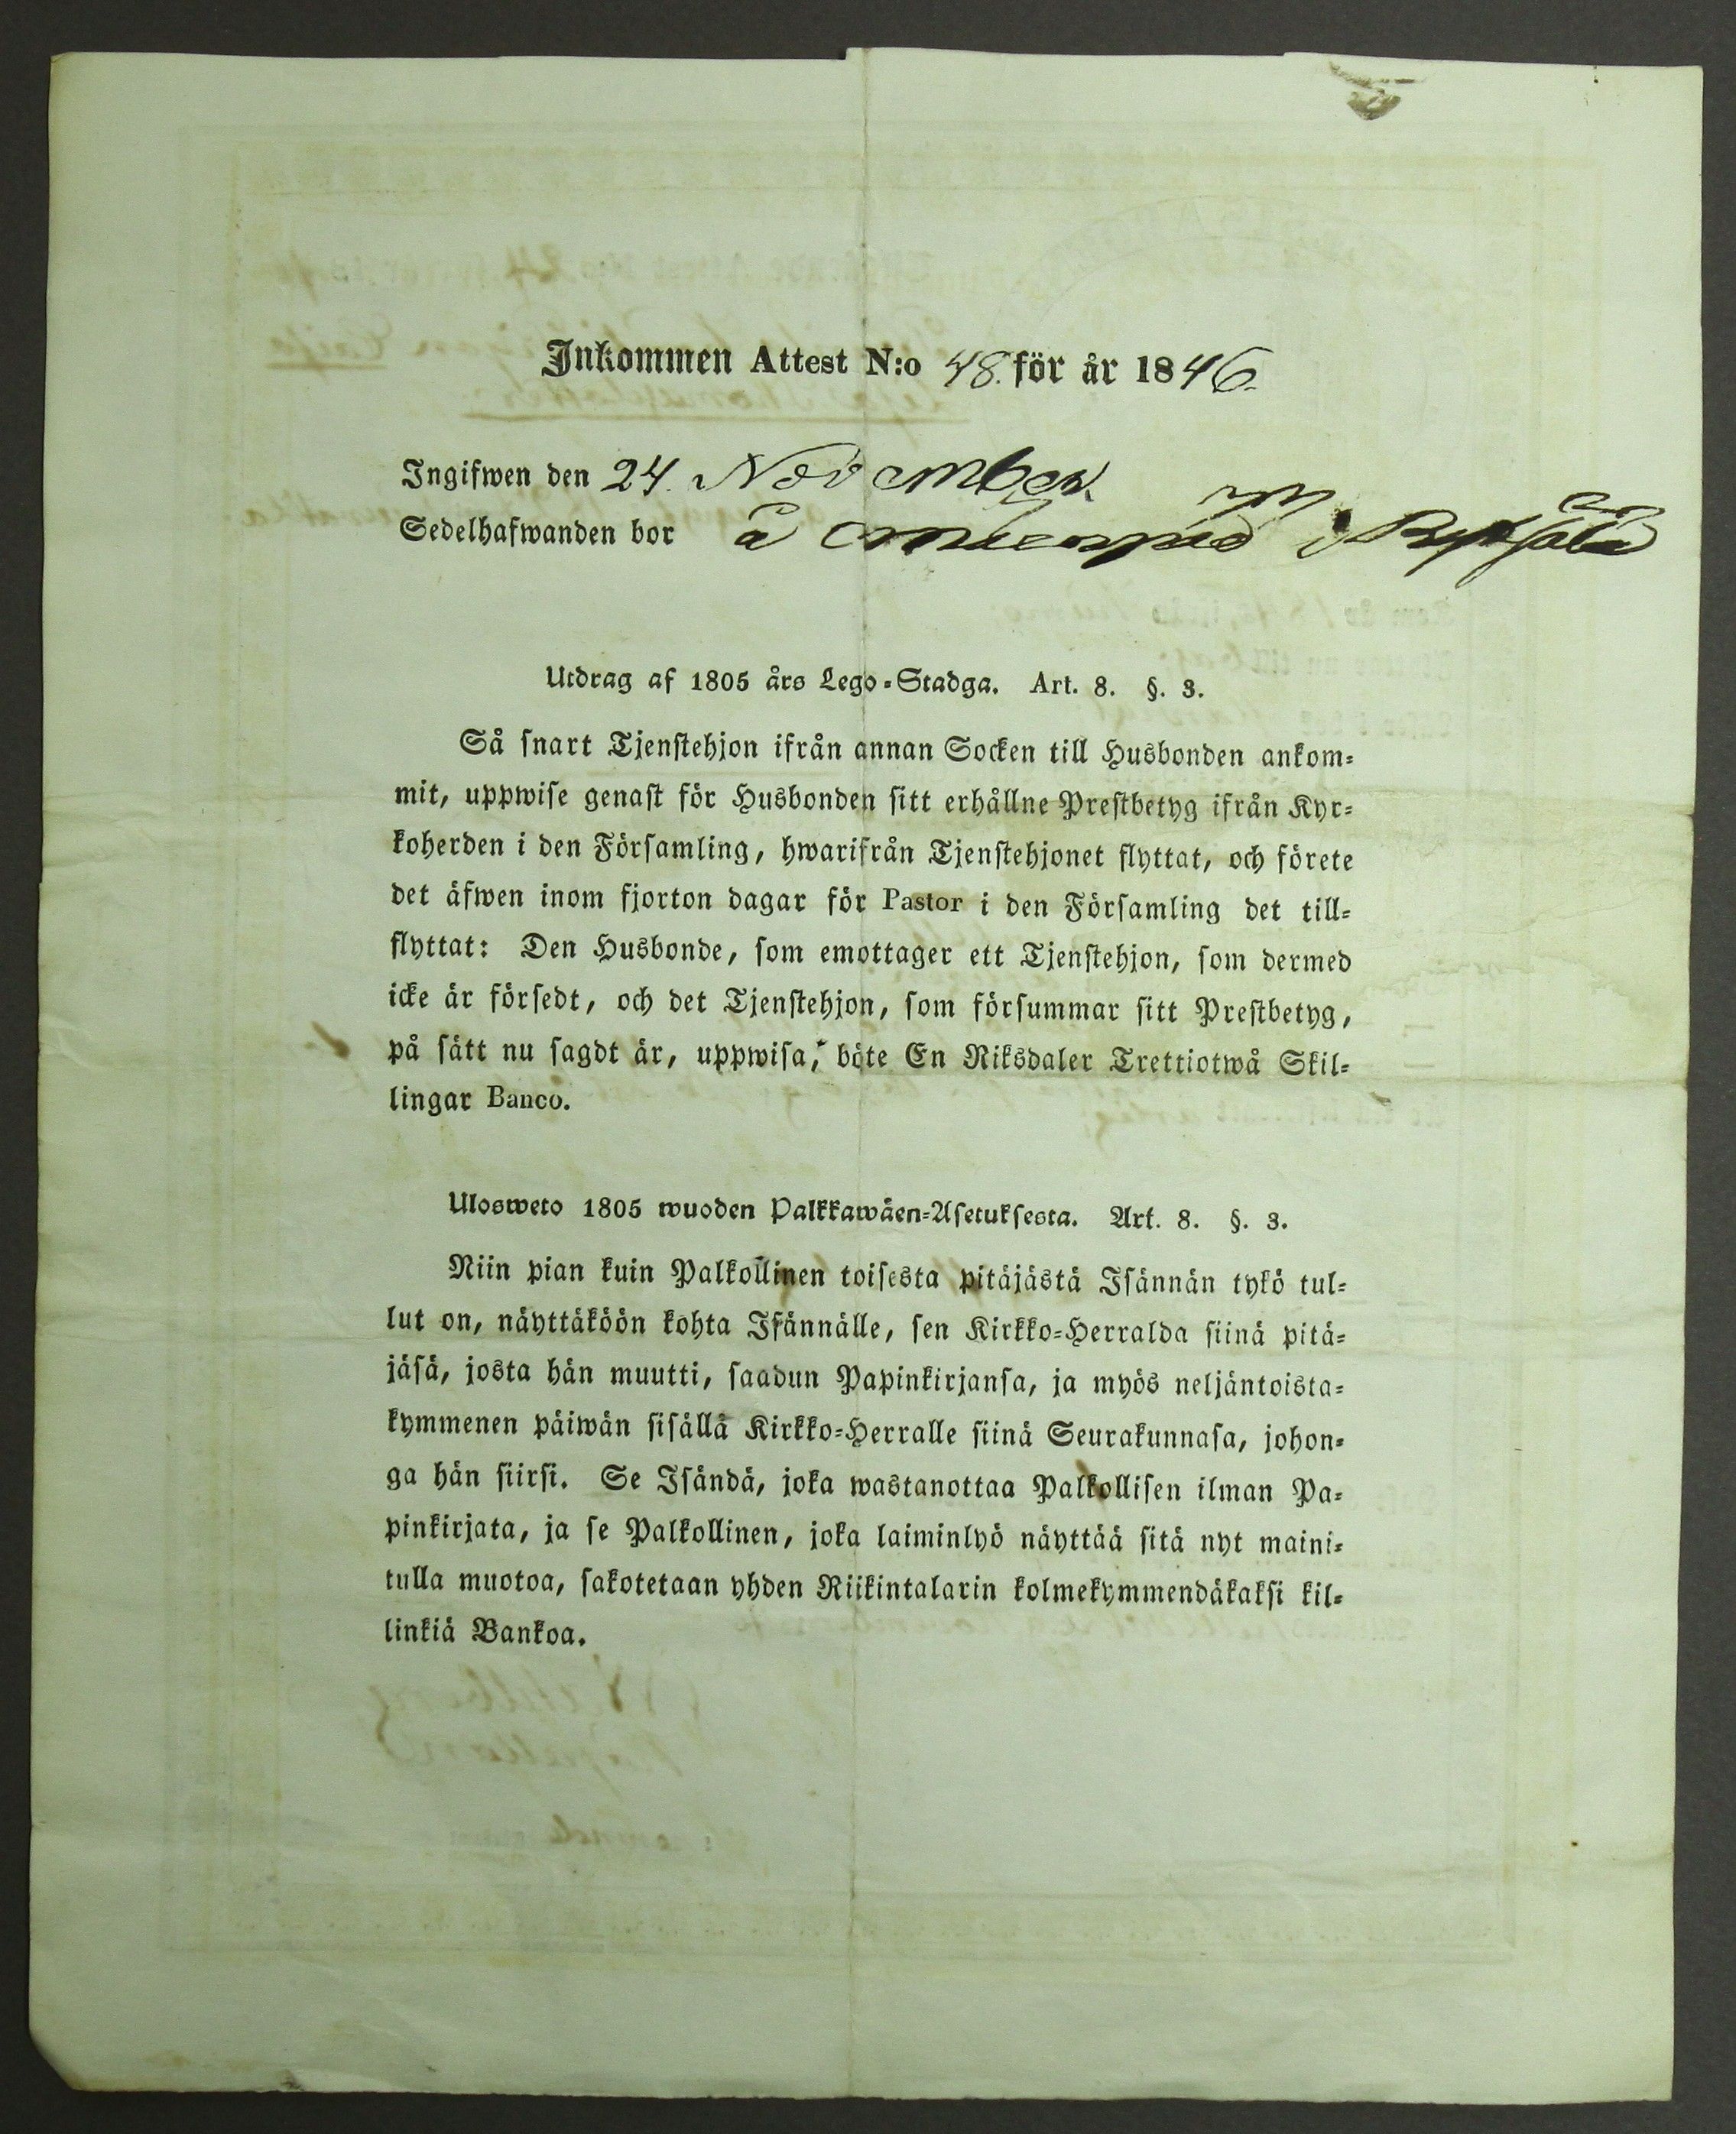 Inkommen Attest N:o 48. för år 1846.
Ingifwen den 24. November
Sedelhafwanden bor å
Utdrag af 1805 års Lego-Stadga. Art. 8. §. 3.
Så snart Tjenstehjon ifrån annan Socken till Husbonden ankom-
mit, uppwise genast för Husbonden sitt erhållne Prestbetyg ifrån Kyr-
koherden i den Församling, hwarifrån Tjenstehjonet flyttat, och förete
det äfwen inom fjorton dagar för Pastor i den Församling det till-
flyttat: Den Husbonde, som emottager ett Tjenstehjon, som dermed
icke är försedt, och det Tjenstehjon, som försummar sitt Prestbetyg,
på sätt nu sagdt är, uppwisa, böte En Riksdaler Trettiotwå Skil-
lingar Banco.
Ulosweto 1805 wuoden Palkkawäen-Asetuksesta. Art. 8. §. 3.
Niin pian kuin Palkollinen toisesta pitäjästä Isännän tykö tul-
lut on, näyttäköön kohta Isännälle, sen Kirkko-Herralda siinä pitä-
jäsä, josta hän muutti, saadun Papinkirjansa, ja myös neljäntoista-
kymmenen päiwän sisällä Kirkko-Herralle siinä Seurakunnasa, johon-
ga hän siirsi. Se Isändä, joka wastanottaa Palkollisen ilman Pa-
pinkirjata, ja se Palkollinen, joka laiminlyö näyttää sitä nyt maini-
tulla muotoa, sakotetaan yhden Riikintalarin kolmekymmendäkaksi kil-
linkiä Bankoa.